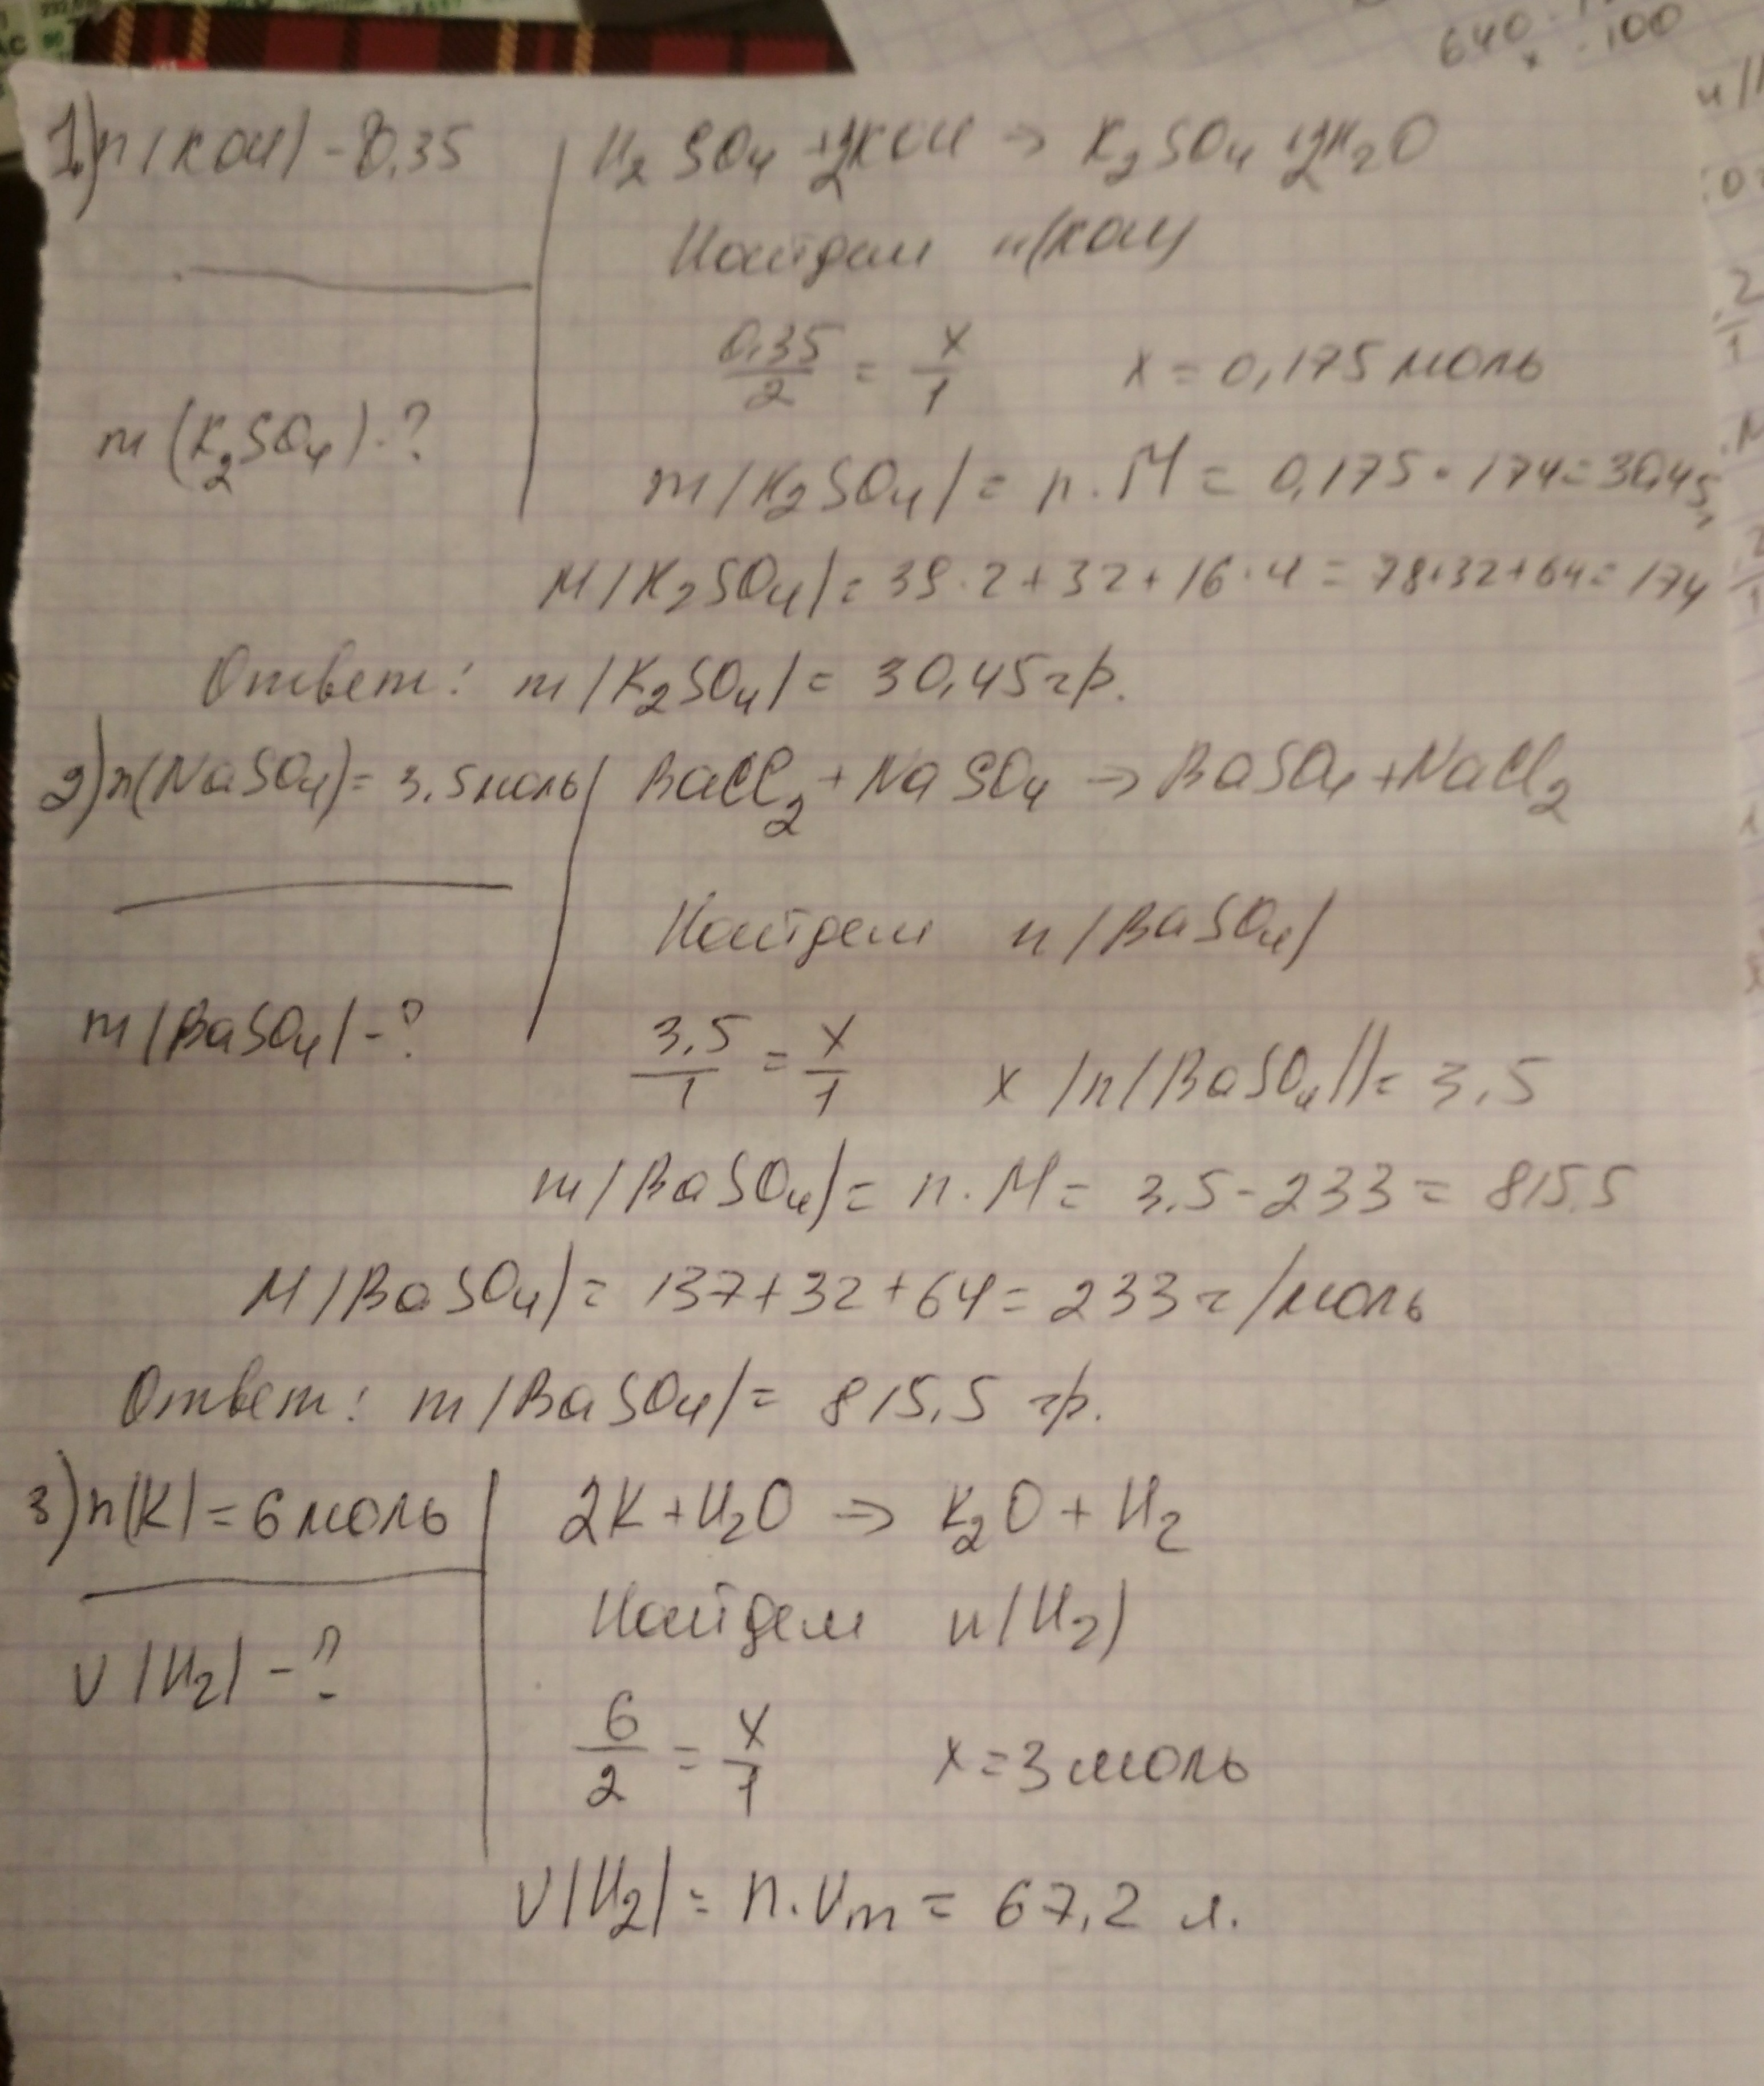 640 · 100
x
1) n(KOH) - 0,35
H2SO4 + 2KOH → K2SO4 + 2H2O
Найдем n(KOH)
0,35/2 = x/1 x = 0,175 моль
m(K2SO4) - ?
m(K2SO4) = n · M = 0,175 · 174 = 30,45
M(K2SO4) = 39 · 2 + 32 + 16 · 4 = 78 + 32 + 64 = 174
Ответ: m(K2SO4) = 30,45 гр.
2) n(NaSO4) = 3,5 моль
BaCl2 + NaSO4 → BaSO4 + NaCl2
Найдем n(BaSO4)
m(BaSO4) - ?
3,5/1 = x/1 x (n(BaSO4)) = 3,5
m(BaSO4) = n · M = 3,5 - 233 = 815,5
M(BaSO4) = 137 + 32 + 64 = 233 г/моль
Ответ: m(BaSO4) = 815,5 гр.
3) n(K) = 6 моль
2K + H2O → K2O + H2
Найдем n(H2)
V(H2) - ?
6/2 = x/1 x = 3 моль
V(H2) = n · Vm = 67,2 л.